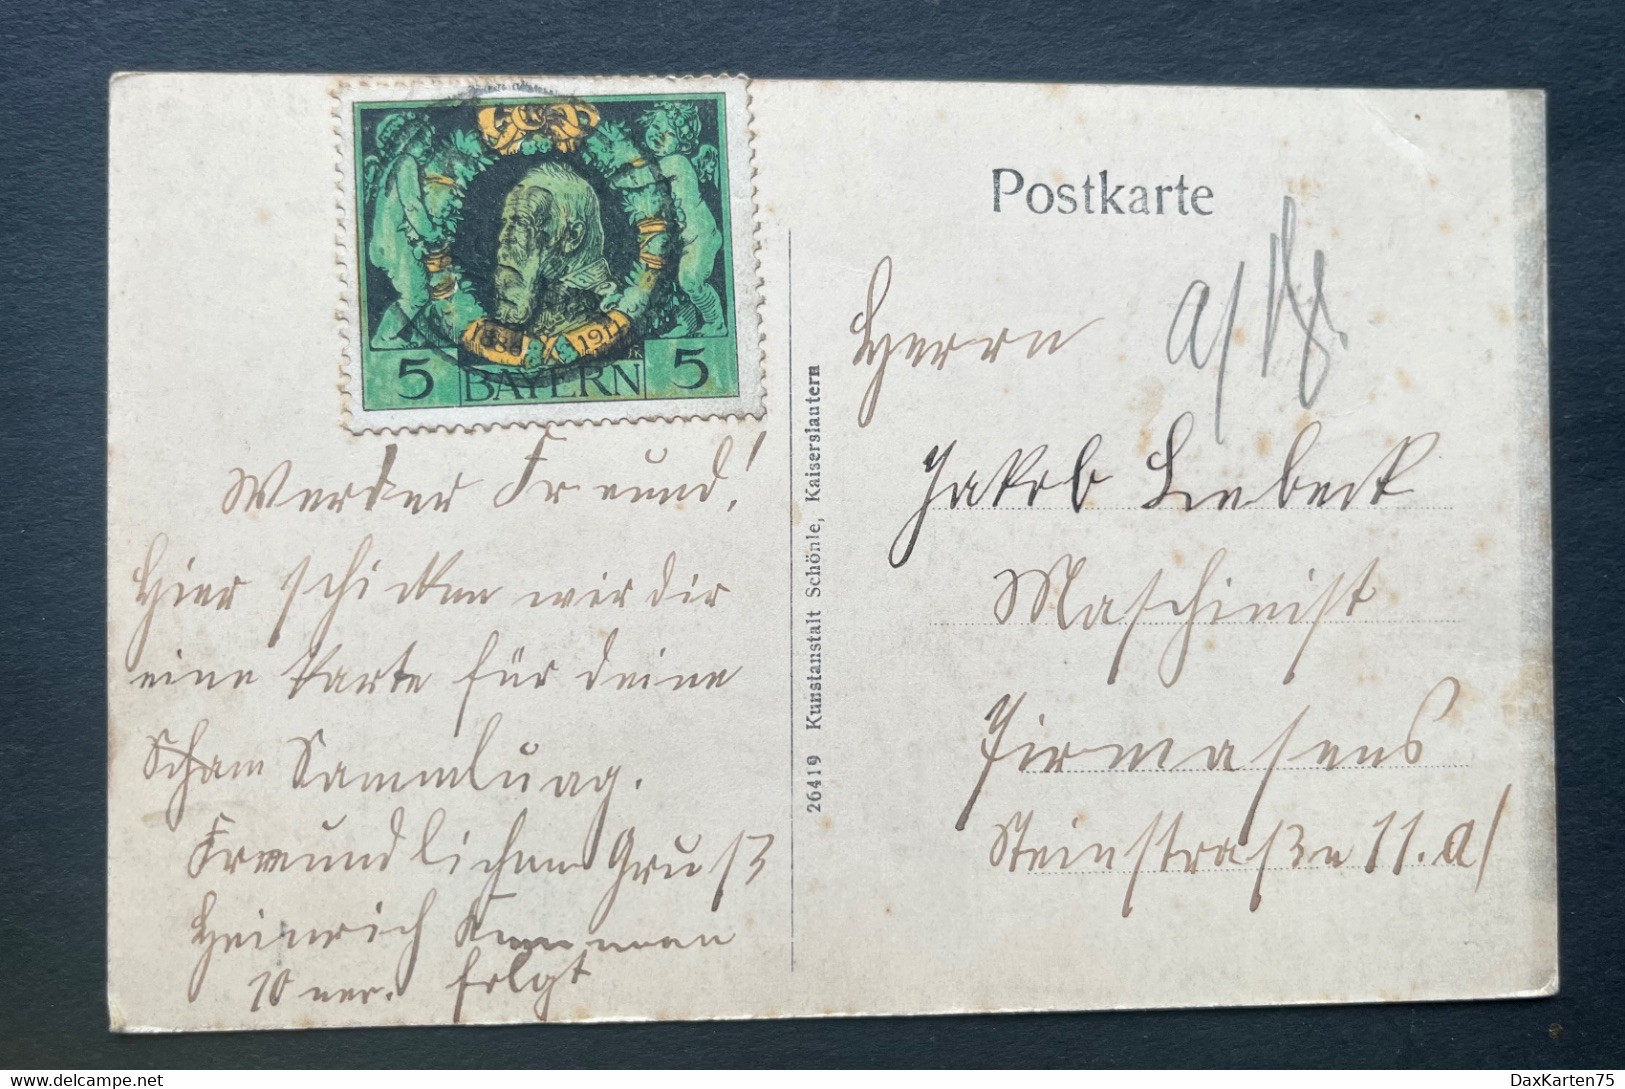 1886 1911
5 BAYERN 5
Werter Freund!
Hier schicken wir dir
eine Karte für deine
Sammlung.
Freundlichen Gruß
Heinrich
folgt
26419 Kunstanstalt Schönle, Kaiserslautern
Postkarte
Herrn
Jakob Liebeck
Maschinist
Pirmasens
Steinstraße 11. a/
DaxKarten75